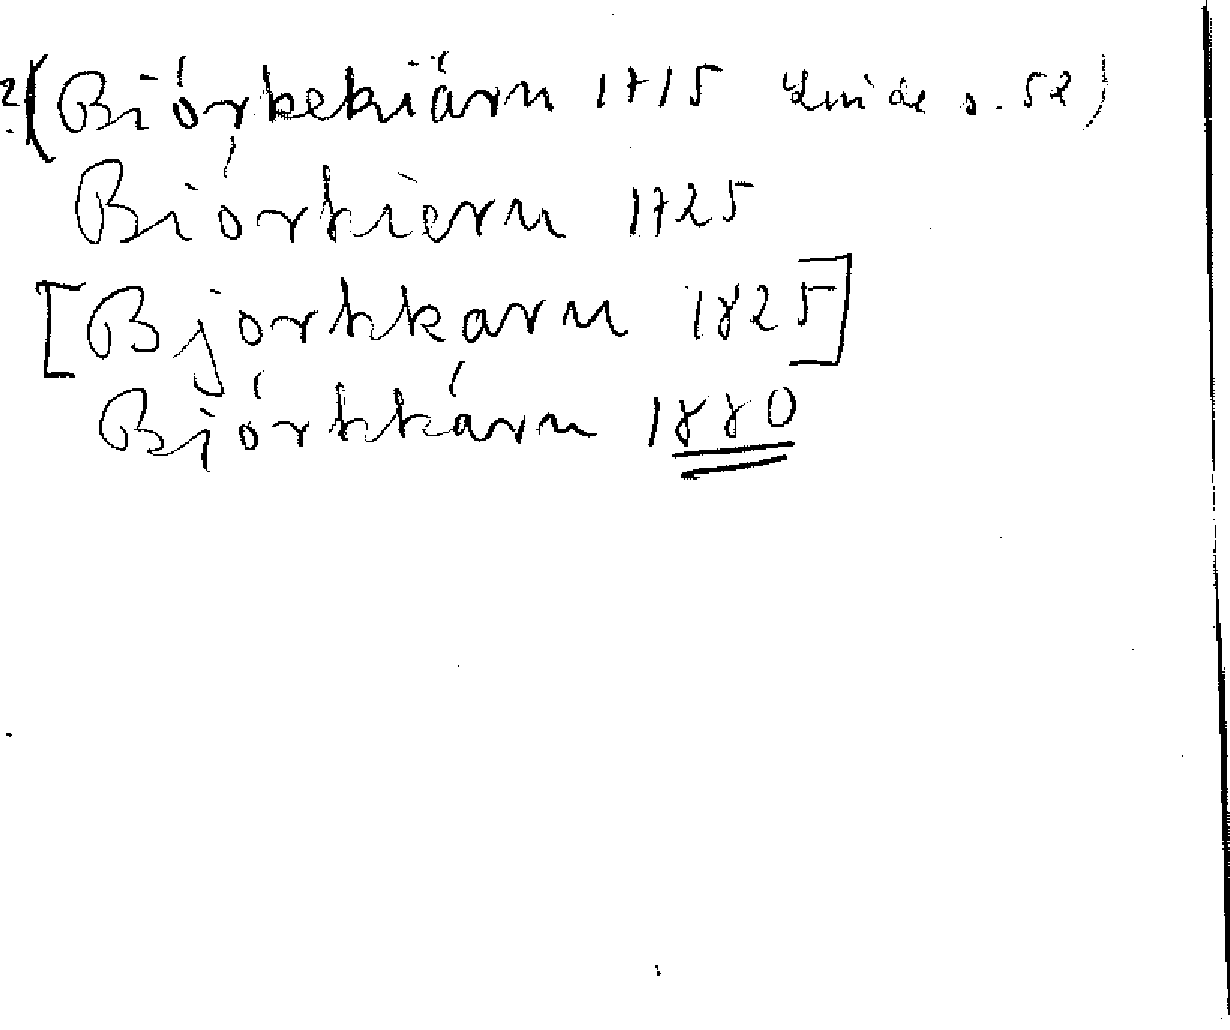 ?(Biörkekiärn 1715 Linde s. 52)
Biörkiern 1725
[Bjorkkarn 1825]
Björkkärn 1880